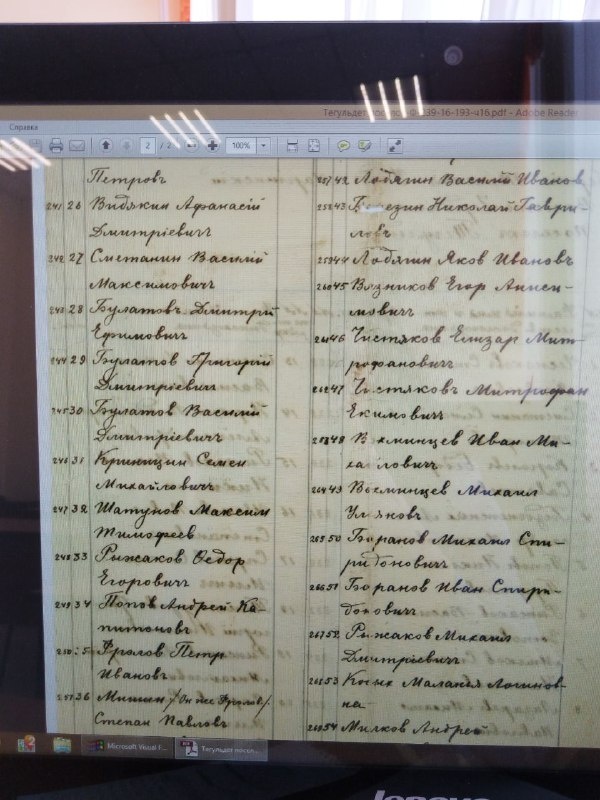 Тегульдет
-16-193-ч16.pdf - Adobe Reader
Справка
2
100%
Петровъ
241 26 Видякин Афанасій
Дмитріевичъ
242 27 Сметанин Василій
Максимовичъ
243 28 Булатовъ Дмитрій
Ефимовичъ
244 29 Булатов Григорій
Дмитріевичъ
245 30 Булатов Василій
Дмитріевичъ
246 31 Криницин Семен
Михайловичъ
247 32 Шатунов Максим
Тимофеев
248 33 Рыжаков Ѳедор
Егоровичъ
249 34 Попов Андрей Ка-
питоновъ
250 Фролов Петр
Ивановъ
251 36 Мишин /Он же Фролов/
Степан Павловъ
257 42 Лодягин Василій Иванов
258 43 Березин Николай Гаври-
ловъ
259 44 Лодягин Яков Ивановъ
260 45 Вязников Егор Аниси-
мовичъ
261 46 Чистяков Елизар Мит-
рофановичъ
262 47 Чистяковъ Митрофан
Екимовичъ
263 48 Вахминцев Иван Ми-
хайловичъ
264 49 Вахминцев Михаил
Ульянов
265 50 Баранов Михаил Спи-
ридоновичъ
266 51 Баранов Иван Спири-
доновичъ
267 52 Рыжаков Михаил
Дмитріевичъ
268 53 Косых Маланья Логинов-
на
269 54 Милков Андрей
Microsoft Visual F...
Тегульдет посел...
lenovo